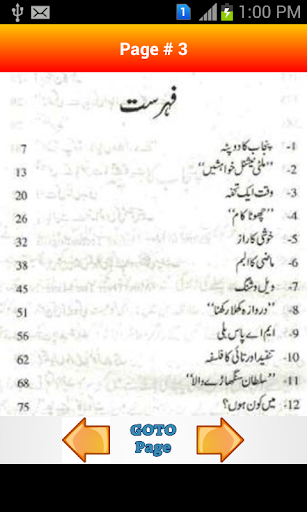 1:00 PM
Page # 3
فہرست
1- پنجاب کا دوپٹہ 7
2- "ملٹی نیشنل خواہشیں" 13
3- وقت ایک تحفہ 20
4- "چھوٹا کام" 26
5- خوشی کا راز 32
6- ماضی کا البم 38
7- ویل وشنگ 45
8- "دروازہ کھلا رکھنا" 51
9- ایم اے پاس بلی 56
10- تنقید اور تائی کا فلسفہ 62
11- "سلطان سنگھاڑے والا" 68
12- میں کون ہوں؟ 75
GOTO
Page